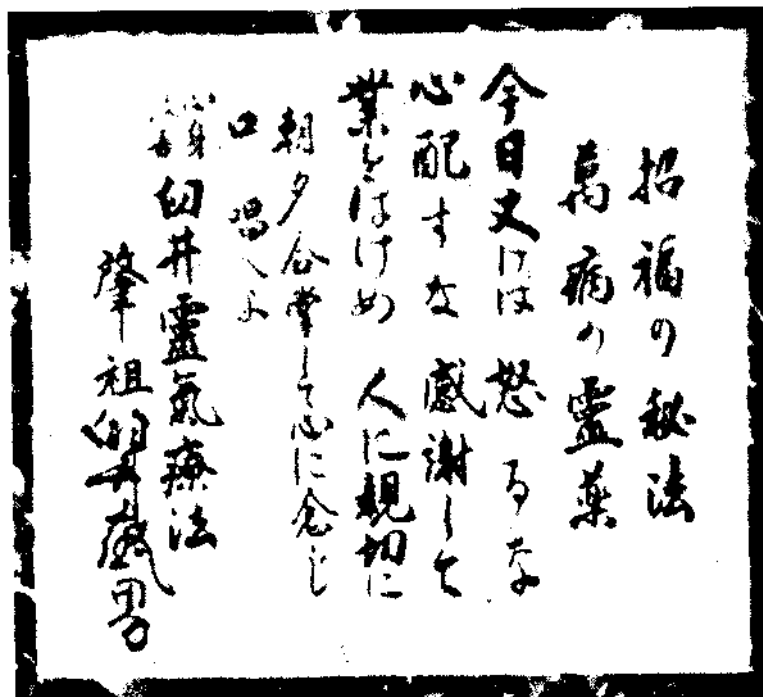 招福の秘法
萬病の靈薬
今日丈けは 怒るな
心配すな 感謝して
業をはけめ 人に親切に
朝夕合掌して心に念じ
口 唱へよ
心身 臼井靈氣療法
肇祖 臼井甕男